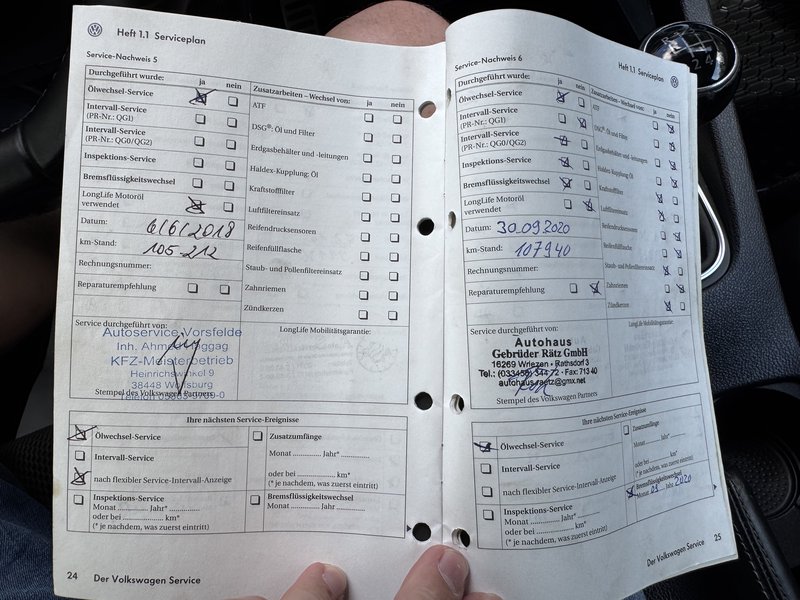 Heft 1.1 Serviceplan
Service-Nachweis 5
Durchgeführt wurde: ja nein
Ölwechsel-Service
Intervall-Service
(PR-Nr.: QG1)
Intervall-Service
(PR-Nr.: QG0/QG2)
Inspektions-Service
Bremsflüssigkeitswechsel
LongLife Motoröl
verwendet
Datum: 6/6/2018
km-Stand: 105.212
Rechnungsnummer:
Reparaturempfehlung
Zusatzarbeiten – Wechsel von: ja nein
ATF
DSG®: Öl und Filter
Erdgasbehälter und -leitungen
Haldex-Kupplung: Öl
Kraftstofffilter
Luftfiltereinsatz
Reifendrucksensoren
Reifenfüllflasche
Staub- und Pollenfiltereinsatz
Zahnriemen
Zündkerzen
Service durchgeführt von:
LongLife Mobilitätsgarantie:
Autoservice Vorsfelde
Inh. Ahmed
KFZ-Meisterbetrieb
Heinrichswinkel 9
38448 Wolfsburg
Stempel des Volkswagen Partners
Ihre nächsten Service-Ereignisse
Ölwechsel-Service
Intervall-Service
nach flexibler Service-Intervall-Anzeige
Inspektions-Service
Monat ............ Jahr* ......
oder bei ............ km*
(* je nachdem, was zuerst eintritt)
Zusatzumfänge
Monat ............ Jahr* ......
oder bei ............ km*
(* je nachdem, was zuerst eintritt)
Bremsflüssigkeitswechsel
Monat ............ Jahr ......
24 Der Volkswagen Service
Heft 1.1 Serviceplan
Service-Nachweis 6
Durchgeführt wurde: ja nein
Ölwechsel-Service
Intervall-Service
(PR-Nr.: QG1)
Intervall-Service
(PR-Nr.: QG0/QG2)
Inspektions-Service
Bremsflüssigkeitswechsel
LongLife Motoröl
verwendet
Datum: 30.09.2020
km-Stand: 107940
Rechnungsnummer:
Reparaturempfehlung
Zusatzarbeiten – Wechsel von: ja nein
ATF
DSG®: Öl und Filter
Erdgasbehälter und -leitungen
Haldex-Kupplung: Öl
Kraftstofffilter
Luftfiltereinsatz
Reifendrucksensoren
Reifenfüllflasche
Staub- und Pollenfiltereinsatz
Zahnriemen
Zündkerzen
Service durchgeführt von:
LongLife Mobilitätsgarantie:
Autohaus
Gebrüder Rätz GmbH
16269 Wriezen - Rathsdorf 3
Tel.: (033456) 344 72 · Fax: 713 40
autohaus.raetz@gmx.net
Stempel des Volkswagen Partners
Ihre nächsten Service-Ereignisse
Ölwechsel-Service
Intervall-Service
nach flexibler Service-Intervall-Anzeige
Inspektions-Service
Monat ............ Jahr* ......
oder bei ............ km*
(* je nachdem, was zuerst eintritt)
Zusatzumfänge
Monat ............ Jahr* ......
oder bei ............ km*
(* je nachdem, was zuerst eintritt)
Bremsflüssigkeitswechsel
Monat 09 Jahr 2020
Der Volkswagen Service 25